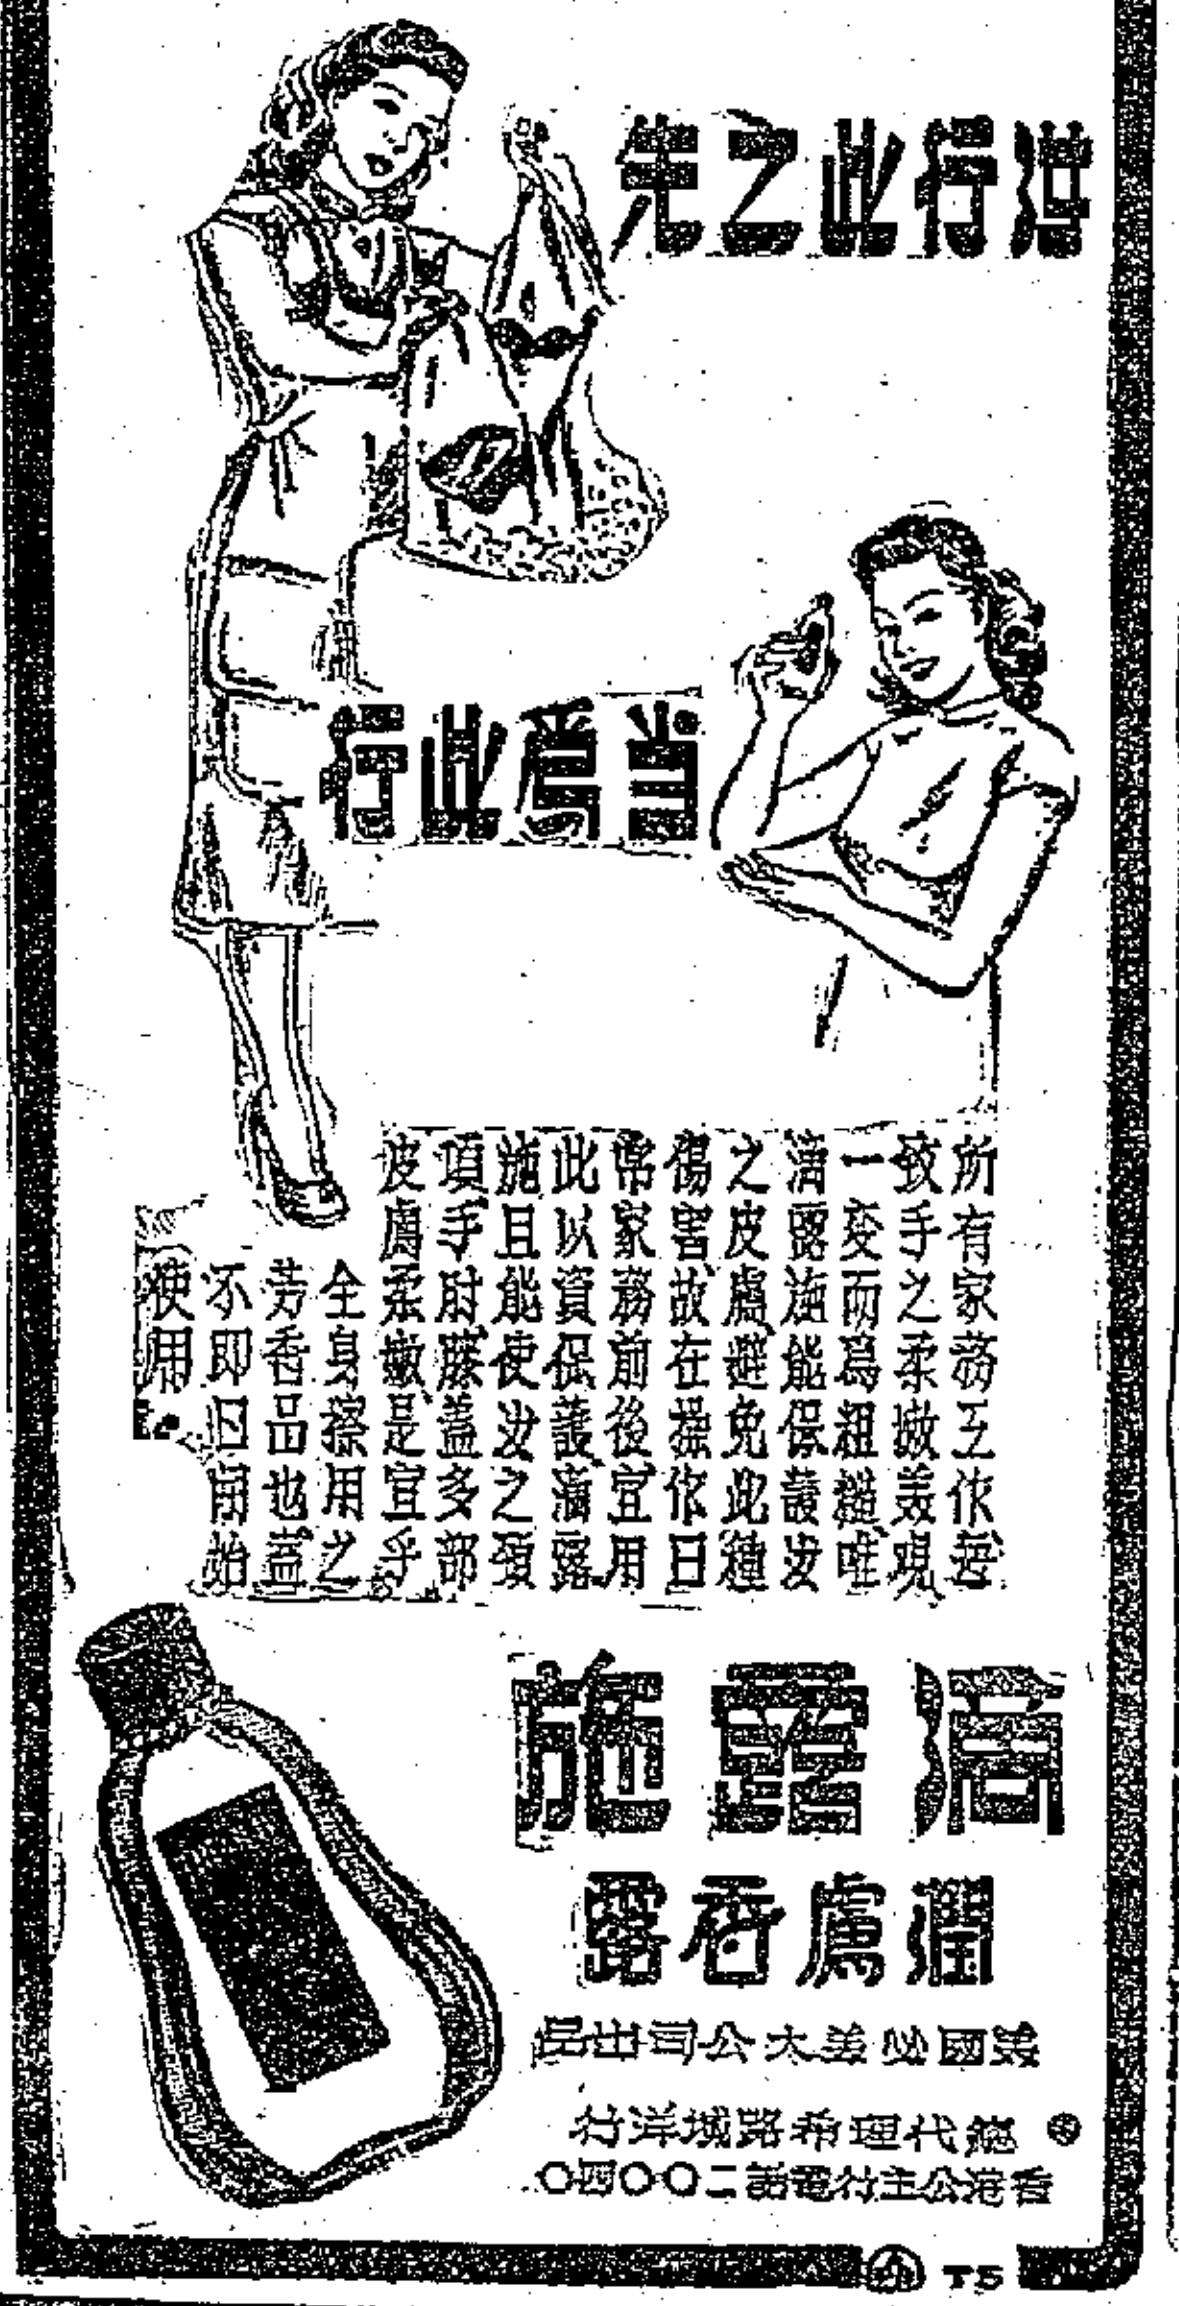 行此之先
当爲此行
所有家務工作
致手之柔嫩美觀
一变而爲粗糙唯
滴露施能保護汝
之皮膚避免此種
傷害故在操作日
常家務前後宜用
此以資保護滴露
施且能使汝之頸
項手肘膝蓋多部
皮膚柔嫩是宜乎
全身擦用之
芳香品也盍
不即日開始
使用
滴露施
潤膚香露
美國必美大公司出品
總代理希路城洋行
香港公主行電話二〇〇四〇
T5